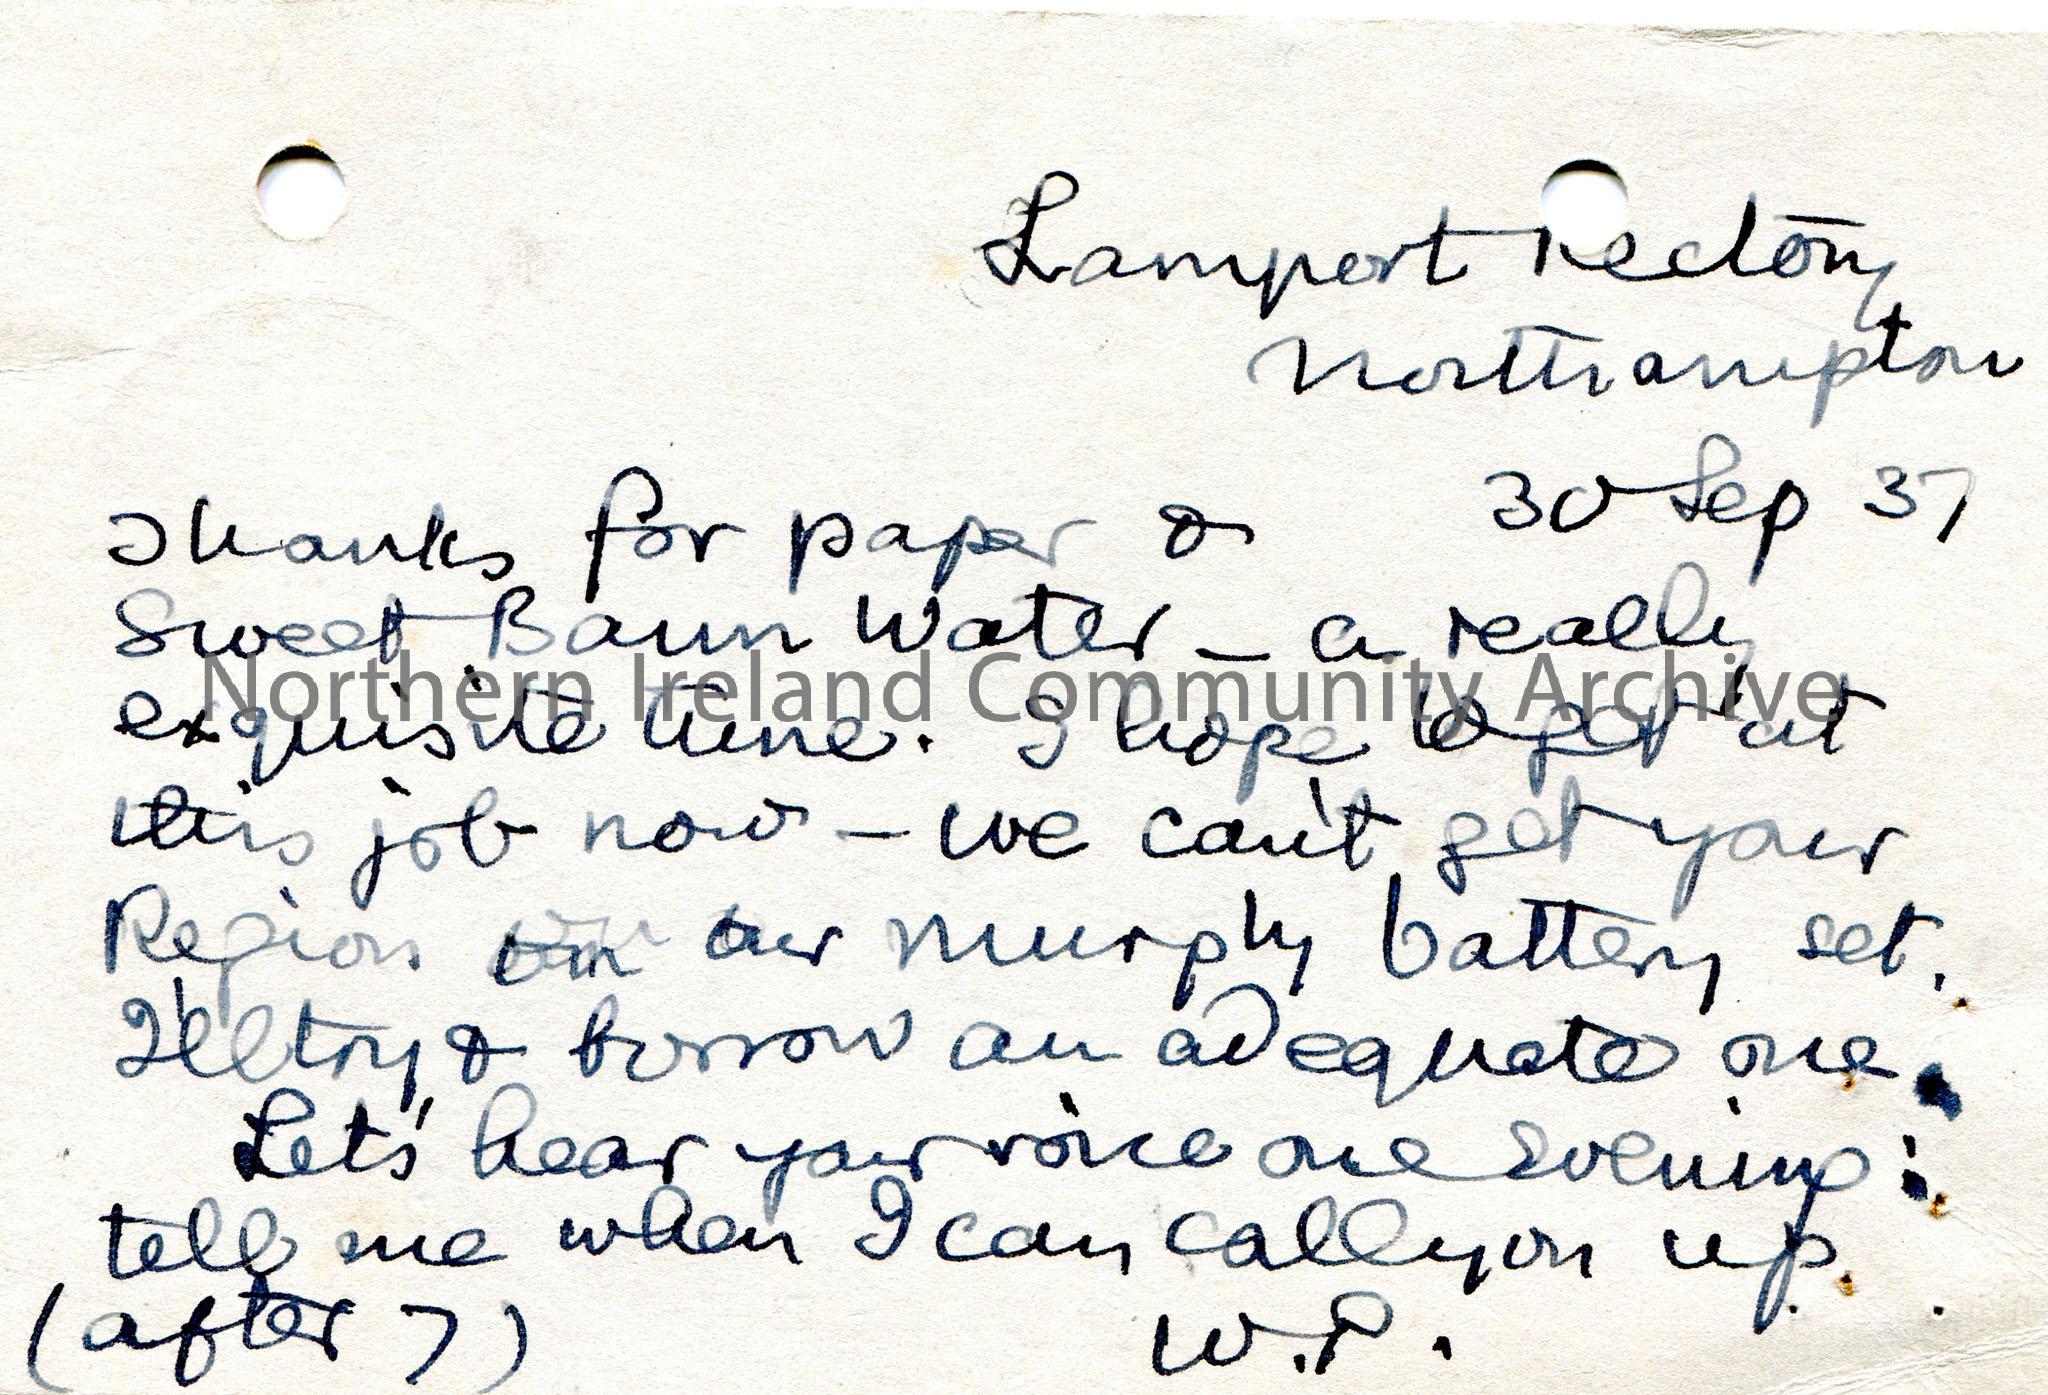 Lamport Rectory
Northampton
30 Sep 37
Thanks for paper &
Sweet Bann Water – a really
exquisite tune. I hope to get at
this job now – we can't get your
Region on our Murphy battery set.
I'll try & borrow an adequate one.
Let's hear your voice one evening:
tell me when I can call you up
(after 7) W.P.
Northern Ireland Community Archive